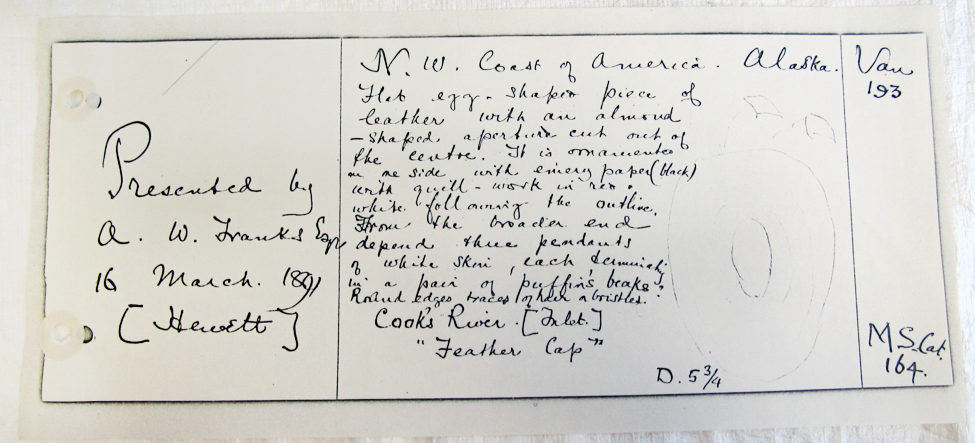 Presented by
A. W. Franks Esqr
16 March. 1891
[Hewett]
N. W. Coast of America. Alaska.
Flat egg-shaped piece of
leather with an almond
-shaped aperture cut out of
the centre. It is ornamented
on one side with emery paper (black)
with quill-work in red &
white following the outline.
From the broader end
depend three pendants
of white skin, each terminating
in a pair of puffin's beaks.
Round edges, traces of hair & bristles.
Cook's River. [Inlet.]
"Feather Cap"
D. 5 3/4
Van
193
M.S. Cat.
164.